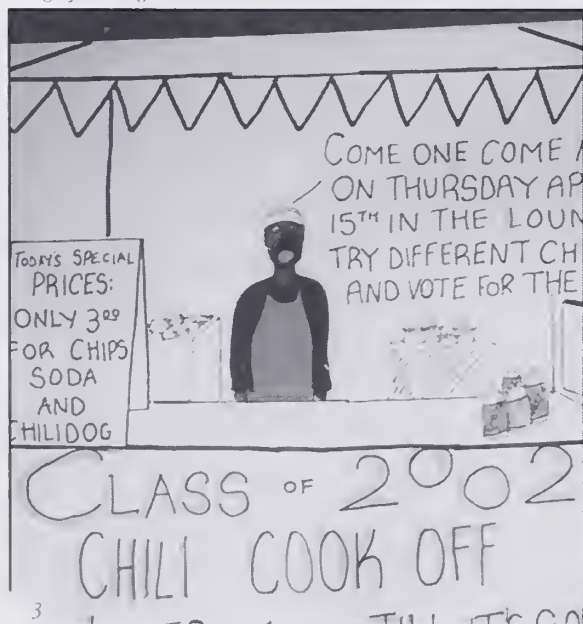 COME ONE COME A
ON THURSDAY AP
15TH IN THE LOUN
TRY DIFFERENT CH
AND VOTE FOR THE
TODAY'S SPECIAL
PRICES:
ONLY 3 00
FOR CHIPS
SODA
AND
CHILIDOG
CLASS OF 2002
CHILI COOK OFF
3
TILL IT'S